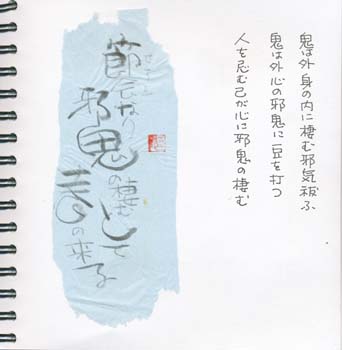 鬼は外身の内に棲む邪気祓ふ
鬼は外心の邪鬼に豆を打つ
人を忌む己が心に邪鬼の棲む
節 なり
邪鬼の棲む として
春の来る